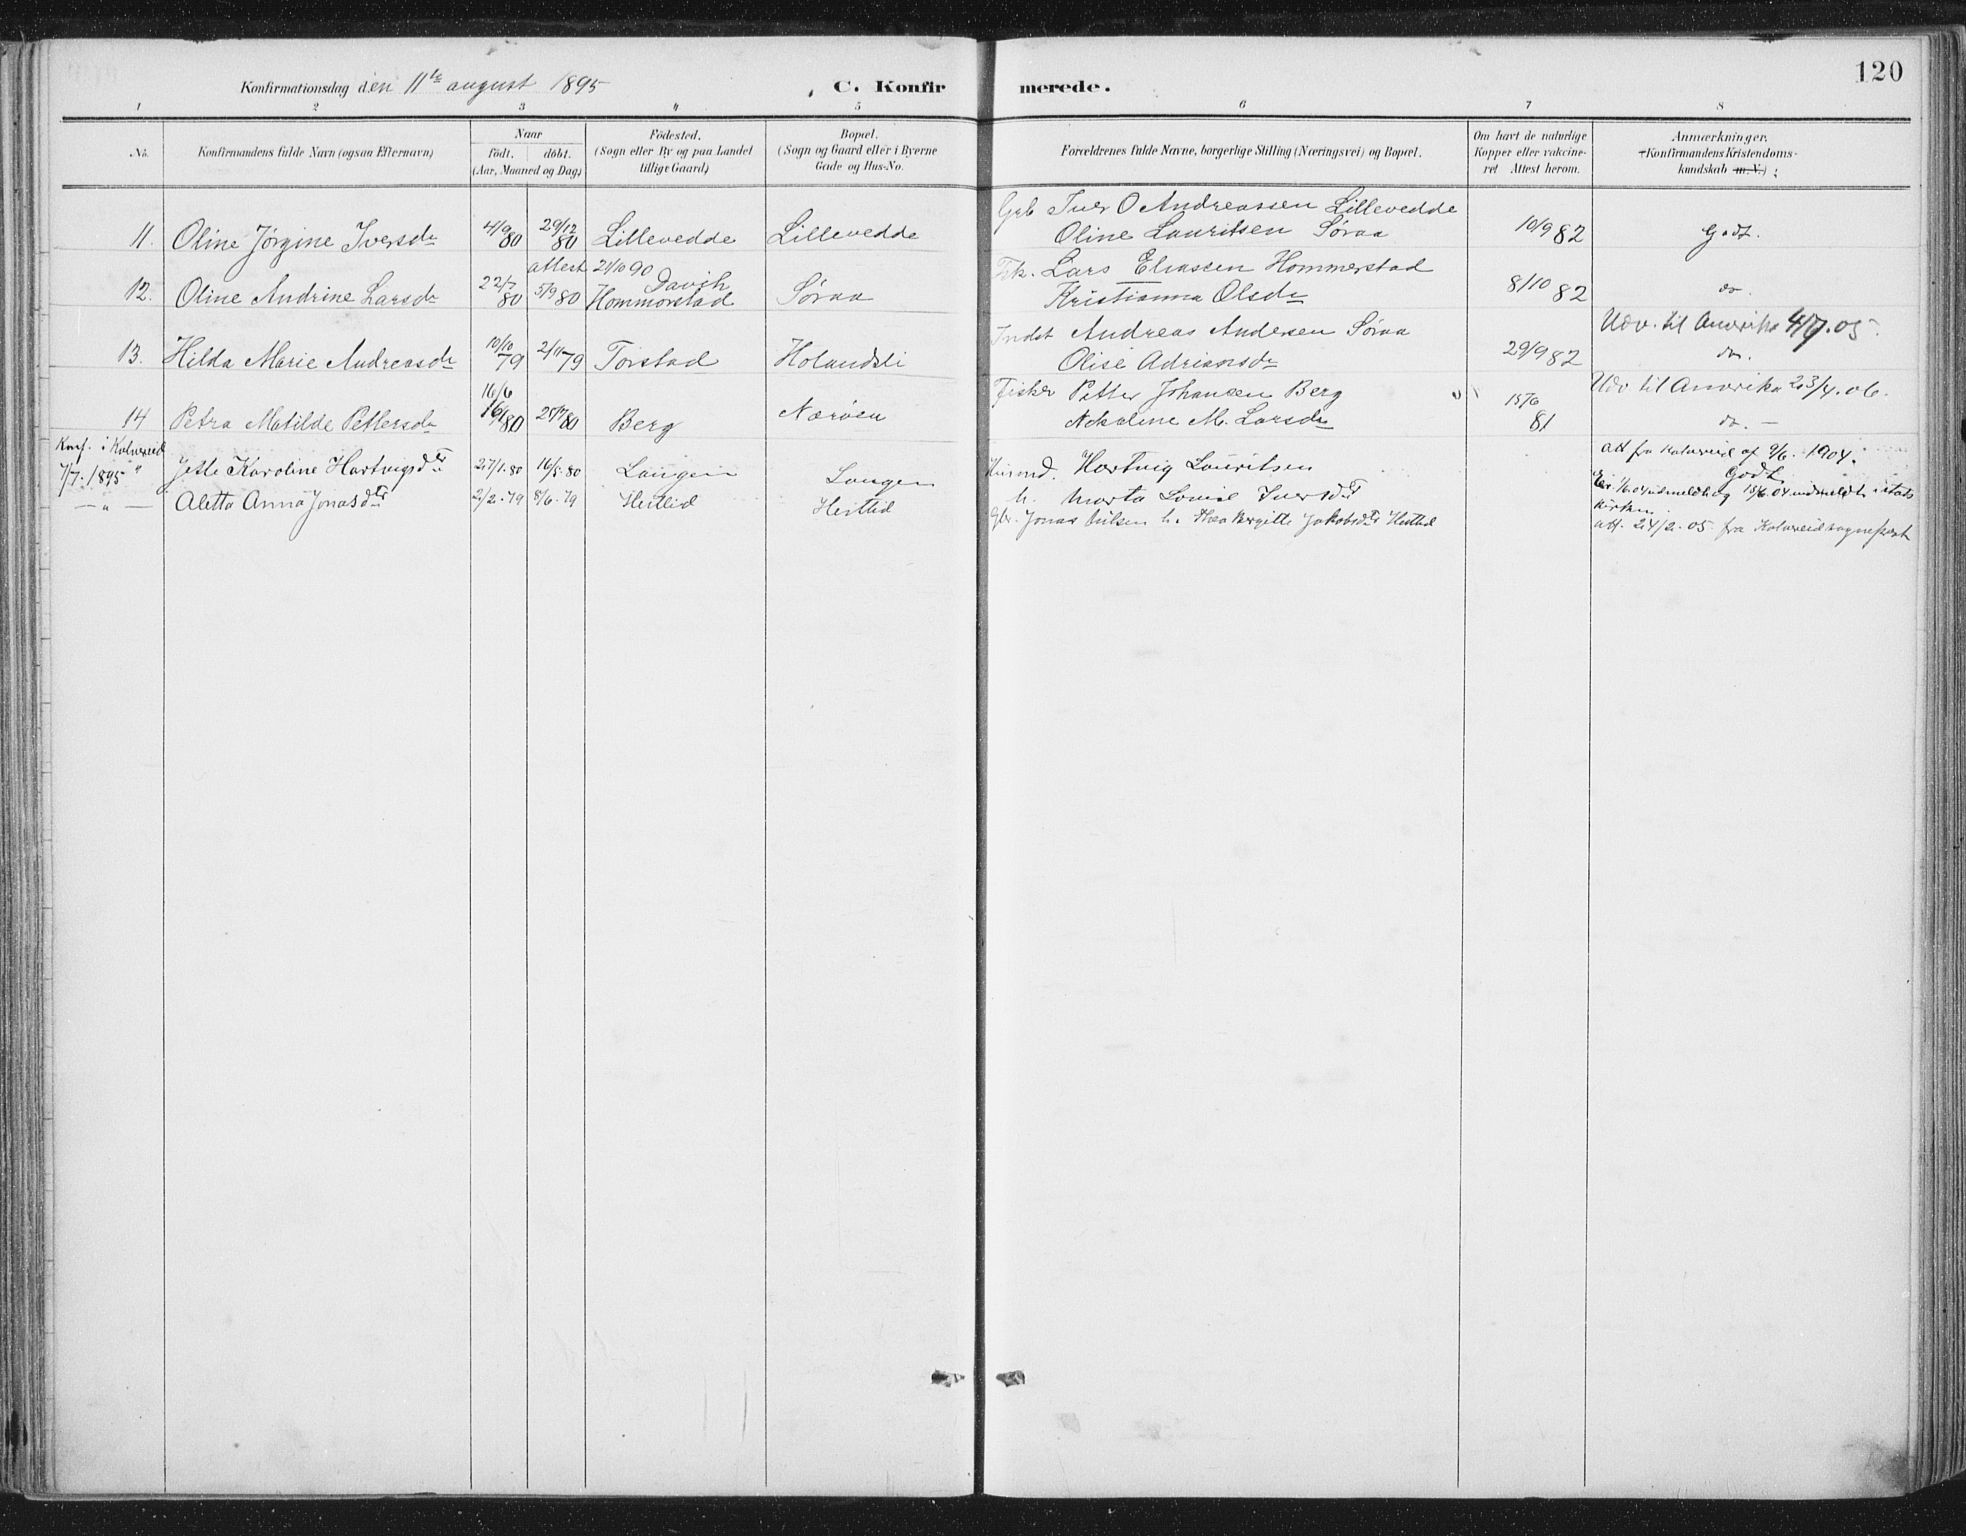 Konfirmationsdag den 11te august 1895
C. Konfirmerede.
120
1 2 3 4 5 6 7 8
No.
Konfirmandens fulde Navn (ogsaa Efternavn)
Naar
födt. döbt.
(Aar, Maaned og Dag)
Födested.
(Sogn eller By og paa Landet
tillige Gaard)
Bopæl.
(Sogn og Gaard eller i Byerne
Gade og Hus-No.
Forældrenes fulde Navne, borgerlige Stilling (Næringsvei) og Bopæl.
Om havt de naturlige
Kopper eller vakcine-
ret Attest herom.
Anmærkninger.
(Konfirmandens Kristendoms-
kundskab m.V.)
11. Oline Jørgine Iversdr 4/9 80 29/12 80 Lillevedde Lillevedde
Grb Iver O Andreassen Lillevedde
Oline Lauritsen Søraa 10/9 82 Godt.
attest 21/10 90
12. Oline Andrine Larsdr 22/7 80 5/9 80 Hommorstad Søraa
Lars Eliassen Hommerstad
Kristianna Olsdr 8/10 82 do
13. Hilda Marie Andreasdr 10/10 79 2/11 79 Torstad Holandsli
Indst Andreas Andersen Søraa
Olise Adriansdr 29/9 82 do.
Udv. til Amerika 4/7.05.
16/6
14 Petra Matilde Pettersdr 16/ 80 25/7 80 Berg Nærøen
Fisker Petter Johansen Berg
M. Larsdr 15/6 81 do. -
Udv til Amerika 23/4.06.
Konf. i Kolvereid
7/7.1895 " Jette Karoline Hartvigsdtr 27/1.80 16/5.80 Laugen Laugen
Husmd. Hartvig Lauritsen
h. Marta Lovise Iversdtr
att fra Kolvereid af 9/6. 1904.
Godt
— " — Aletta Anna Jonasdtr 2/2.79 8/6.79 Hestlid Hestlid
Gbr. Jonas h. Thea Bergitte Jakobsdtr Hestlid
Er 1/6.04 udmeldt og 15/6.04 indmeldt i stats
kirken.
att. 24/2.05 fra Kolvereid sognepræst